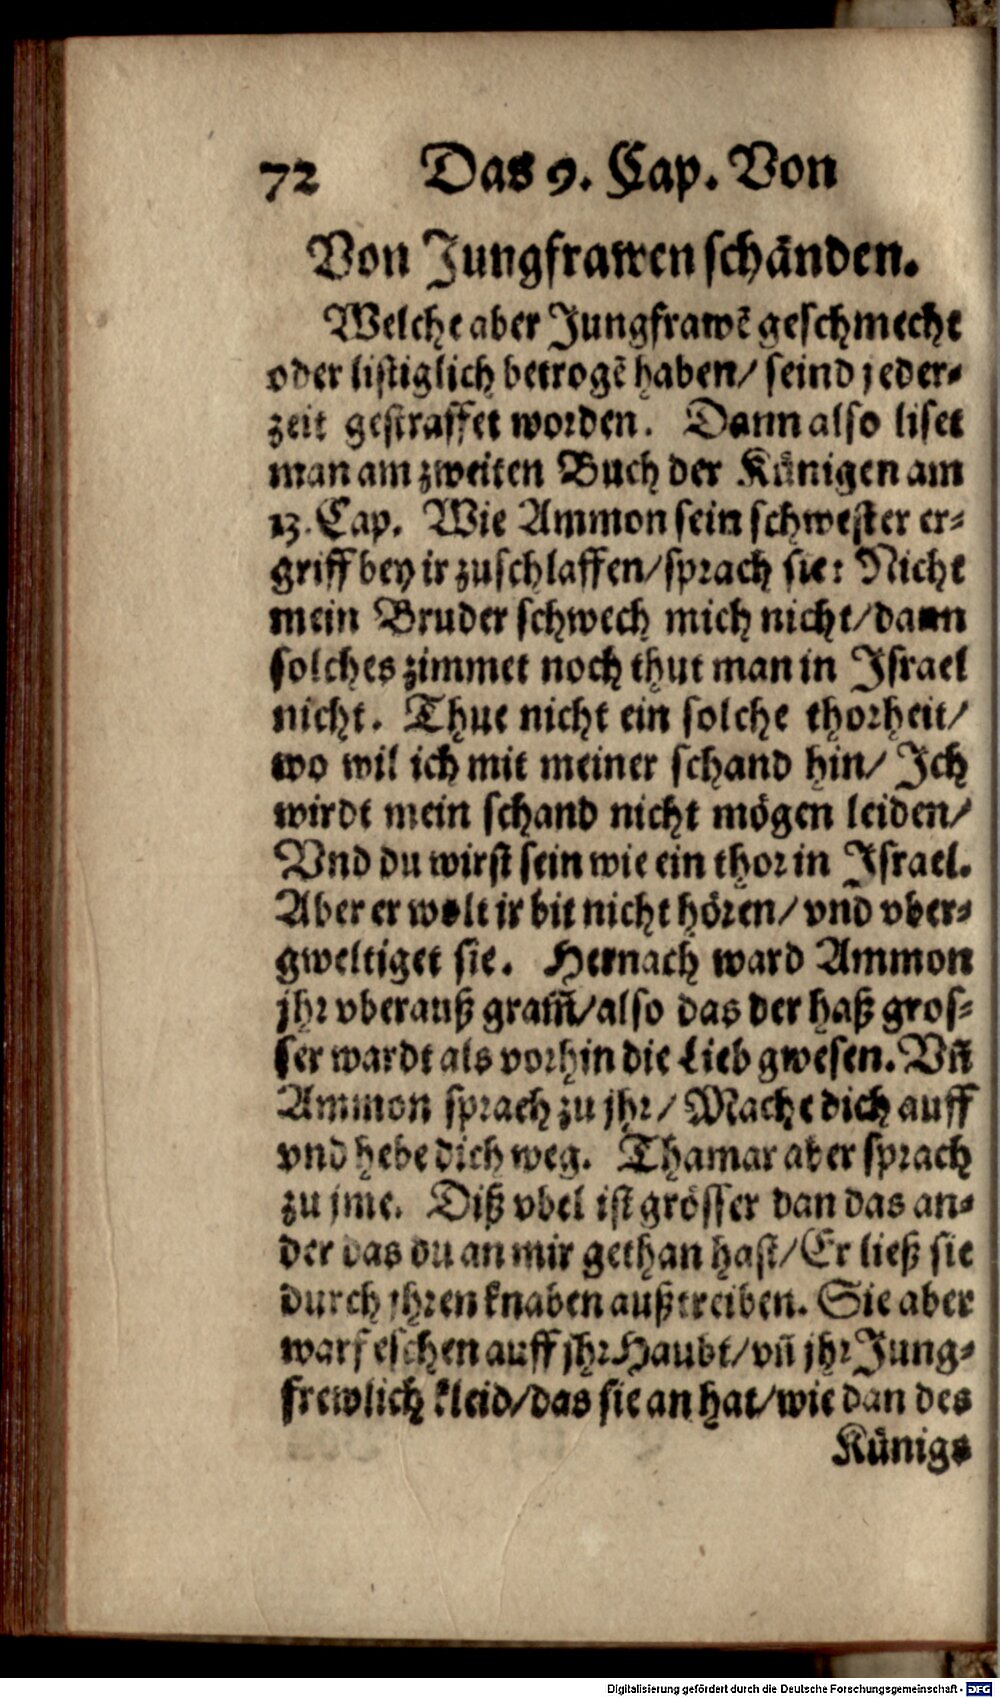 72 Das 9. Cap. Von
Von Jungfrawen schänden.
Welche aber Jungfrawẽ geschmecht
oder listiglich betrogẽ haben/ seind jeder-
zeit gestraffet worden. Dann also liset
man am zweiten Buch der Künigen am
13. Cap. Wie Ammon sein schwester er-
griff bey ir zuschlaffen/ sprach sie: Nicht
mein Bruder schwech mich nicht/ dann
solches zimmet noch thut man in Israel
nicht. Thue nicht ein solche thorheit/
wo wil ich mit meiner schand hin/ Ich
wirdt mein schand nicht mögen leiden/
Vnd du wirst sein wie ein thor in Israel.
Aber er wolt ir bit nicht hören/ vnd vber-
gweltiget sie. Hernach ward Ammon
jhr vberauß gram̃/ also das der haß gros-
ser wardt als vorhin die Lieb gwesen. Vñ
Ammon sprach zu jhr/ Mache dich auff
vnd hebe dich weg. Thamar aber sprach
zu jme. Diß vbel ist grösser dan das an-
der das du an mir gethan hast/ Er ließ sie
durch jhren knaben außtreiben. Sie aber
warf eschen auff jhr Haubt/ vñ jhr Jung-
frewlich kleid/ das sie an hat/ wie dan des
Künigs
Digitalisierung gefördert durch die Deutsche Forschungsgemeinschaft - DFG